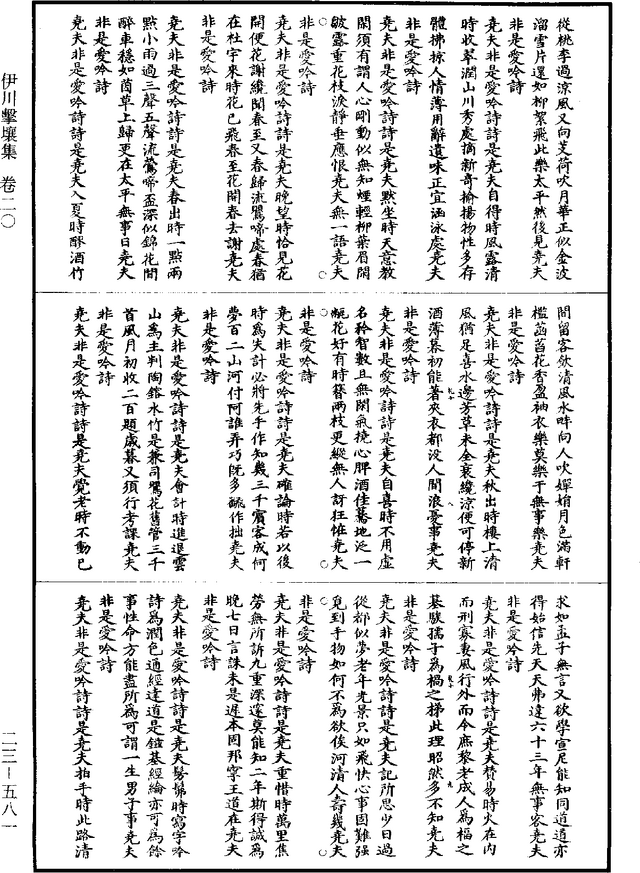 從桃李過涼風又向芰荷吹月華正似金波
溜雪片還如柳絮飛此樂太平然後見堯夫
非是愛吟詩
堯夫非是愛吟詩詩是堯夫自得時風露清
時收翠潤山川秀處摘新奇揄揚物性多存
體拂掠人情薄用辭遺味正宜涵泳處堯夫
非是愛吟詩
堯夫非是愛吟詩詩是堯夫默坐時天意教
閑須有謂人心剛動似無知煙輕柳葉眉間
皺露重花枝淚靜垂應恨堯夫無一語堯夫
非是愛吟詩
堯夫非是愛吟詩詩是堯夫晚望時恰見花
開便花謝纔聞春至又春歸流鶯啼處春猶
在杜宇來時花已飛春至花開春去謝堯夫
非是愛吟詩
堯夫非是愛吟詩詩是堯夫春出時一點兩
點小雨過三聲五聲流鶯啼盃深似錦花間
醉車穩如茵草上歸更在太平無事日堯夫
非是愛吟詩
堯夫非是愛吟詩詩是堯夫入夏時醪酒竹
間留客飲清風水畔向人吹嬋娟月色滿軒
檻菡萏花香盈衲衣樂莫樂于無事樂堯夫
非是愛吟詩
堯夫非是愛吟詩詩是堯夫秋出時樓上清
風猶足喜水邊芳草未全衰纔涼便可停新
酒薄暮初能著夾衣都没人間浪憂事堯夫
非是愛吟詩
堯夫非是愛吟詩詩是堯夫自喜時不用虛
名矜智數且無閑氣撓心脾酒佳驀地泛一
瓻花好有時簪兩枝更縱無人訝狂怪堯夫
非是愛吟詩
堯夫非是愛吟詩詩是堯夫確論時若以後
時為失計必將先手作知幾三千賓客成何
夢百二山河付阿誰弄巧既多翻作拙堯夫
非是愛吟詩
堯夫非是愛吟詩詩是堯夫會計時進退雲
山為主判陶鎔水竹是兼司鶯花舊管三千
首風月初收二百題歲暮又須行考課堯夫
非是愛吟詩
堯夫非是愛吟詩詩是堯夫覺老時不動已
求如孟子無言又欲學宣尼能知同道道亦
得始信先天天弗違六十三年無事客堯夫
非是愛吟詩
堯夫非是愛吟詩詩是堯夫贊易時火在內
而刑寡妻風行外而令庶黎老成人為福之
基騃孺子為禍之梯此理昭然多不知堯夫
非是愛吟詩
堯夫非是愛吟詩詩是堯夫記所思少日過
從都似夢老年光景只如飛快心事固難強
覓到手物如何不為欲俟河清人壽幾堯夫
非是愛吟詩
堯夫非是愛吟詩詩是堯夫重惜時萬里焦
勞無所訴九重深邃莫能知二年斯得誠為
晚七日言誅未是遲本固邦寧王道在堯夫
非是愛吟詩
堯夫非是愛吟詩詩是堯夫鬅鬙時寫字吟
詩為潤色通經達道是鎡基經綸亦可為餘
事性命方能盡所為可謂一生男子事堯夫
非是愛吟詩
堯夫非是愛吟詩詩是堯夫拍手時此路清
伊川擊壤集 卷二〇
二三-五八一